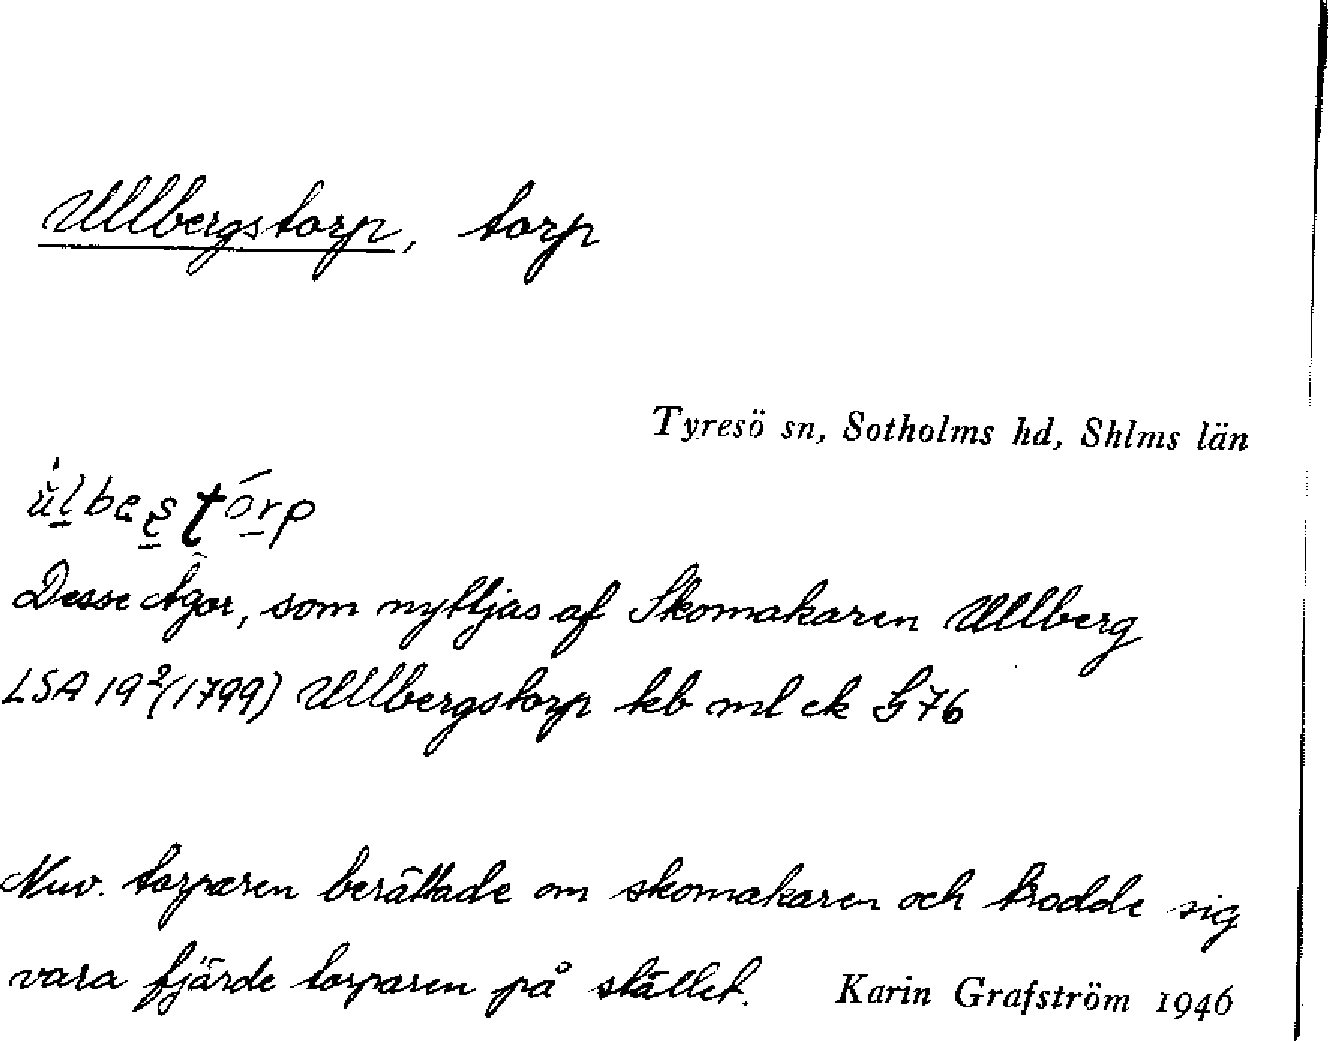 Ullbergstorp, torp
Tyresö sn, Sotholms hd, Shlms län
Desse Ägor, som nyttjas af Skomakaren Ullberg
LSA 19²(1799) Ullbergstorp kb ml ek G76
Nuv. torparen berättade om skomakaren och trodde sig
vara fjärde torparen på stället. Karin Grafström 1946